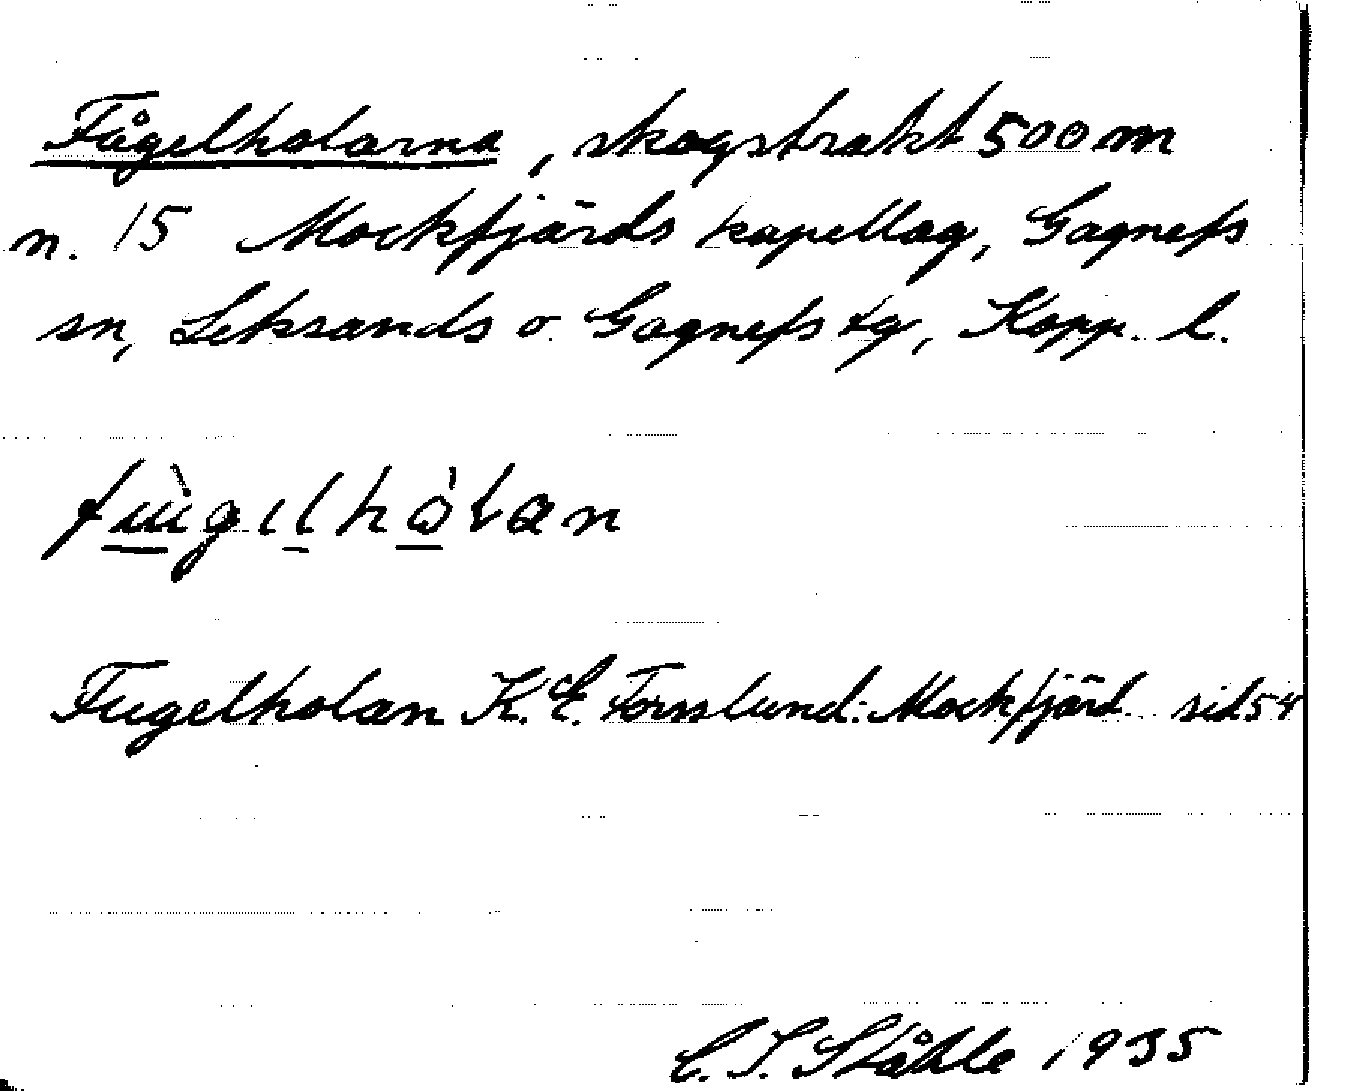 Fågelholarna, skogstrakt 500 m
n. 15 Mockfjärds kapellag, Gagnefs
sn, Leksands o. Gagnefs tg, Kopp. l.
fùgelhòlan
Fugelholan K. E. Forsslund: Mockfjärd sid 54
C. I. Ståhle 1935